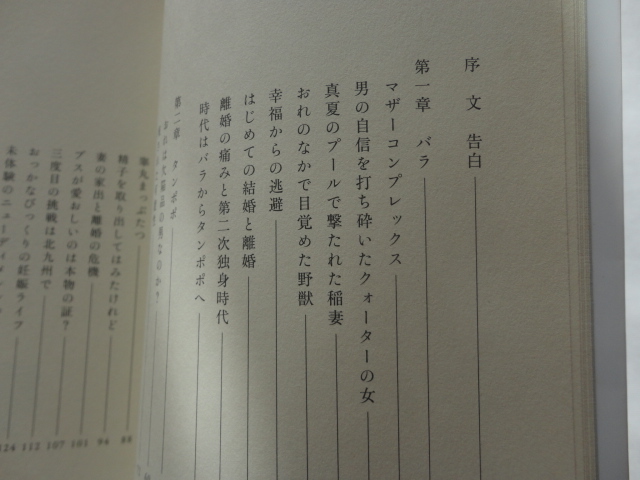 序文 告白
第一章 バラ
マザーコンプレックス
男の自信を打ち砕いたクォーターの女
真夏のプールで撃たれた稲妻
おれのなかで目覚めた野獣
幸福からの逃避
はじめての結婚と離婚
離婚の痛みと第二次独身時代
時代はバラからタンポポへ
第二章 タンポポ
睾丸まっぷたつ
精子を取り出してはみたけれど 88
妻の家出と離婚の危機 94
ブスが愛おしいのは本物の証? 101
三度目の挑戦は北九州で 107
おっかなびっくりの妊娠ライフ 112
124